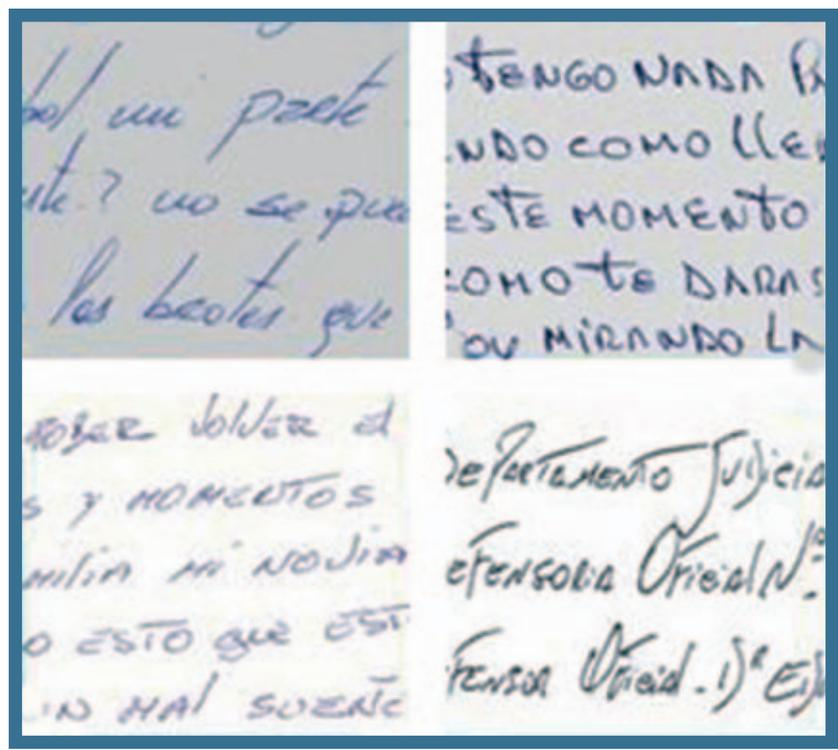 mi parte
? no se pue
les beotes que
TENGO NADA P
NDO COMO LLE
ESTE MOMENTO
COMO TE DARAS
OY MIRANDO LA
POBER VOLVER El
S Y MOMENTOS
MILIA MI NOVIA
O ESTO QUE EST
UN MAL SUEÑO
DEPARTAMENTO JUDICIA
EFENSORIA OFICIAL Nº
FENSOR OFICIAL.